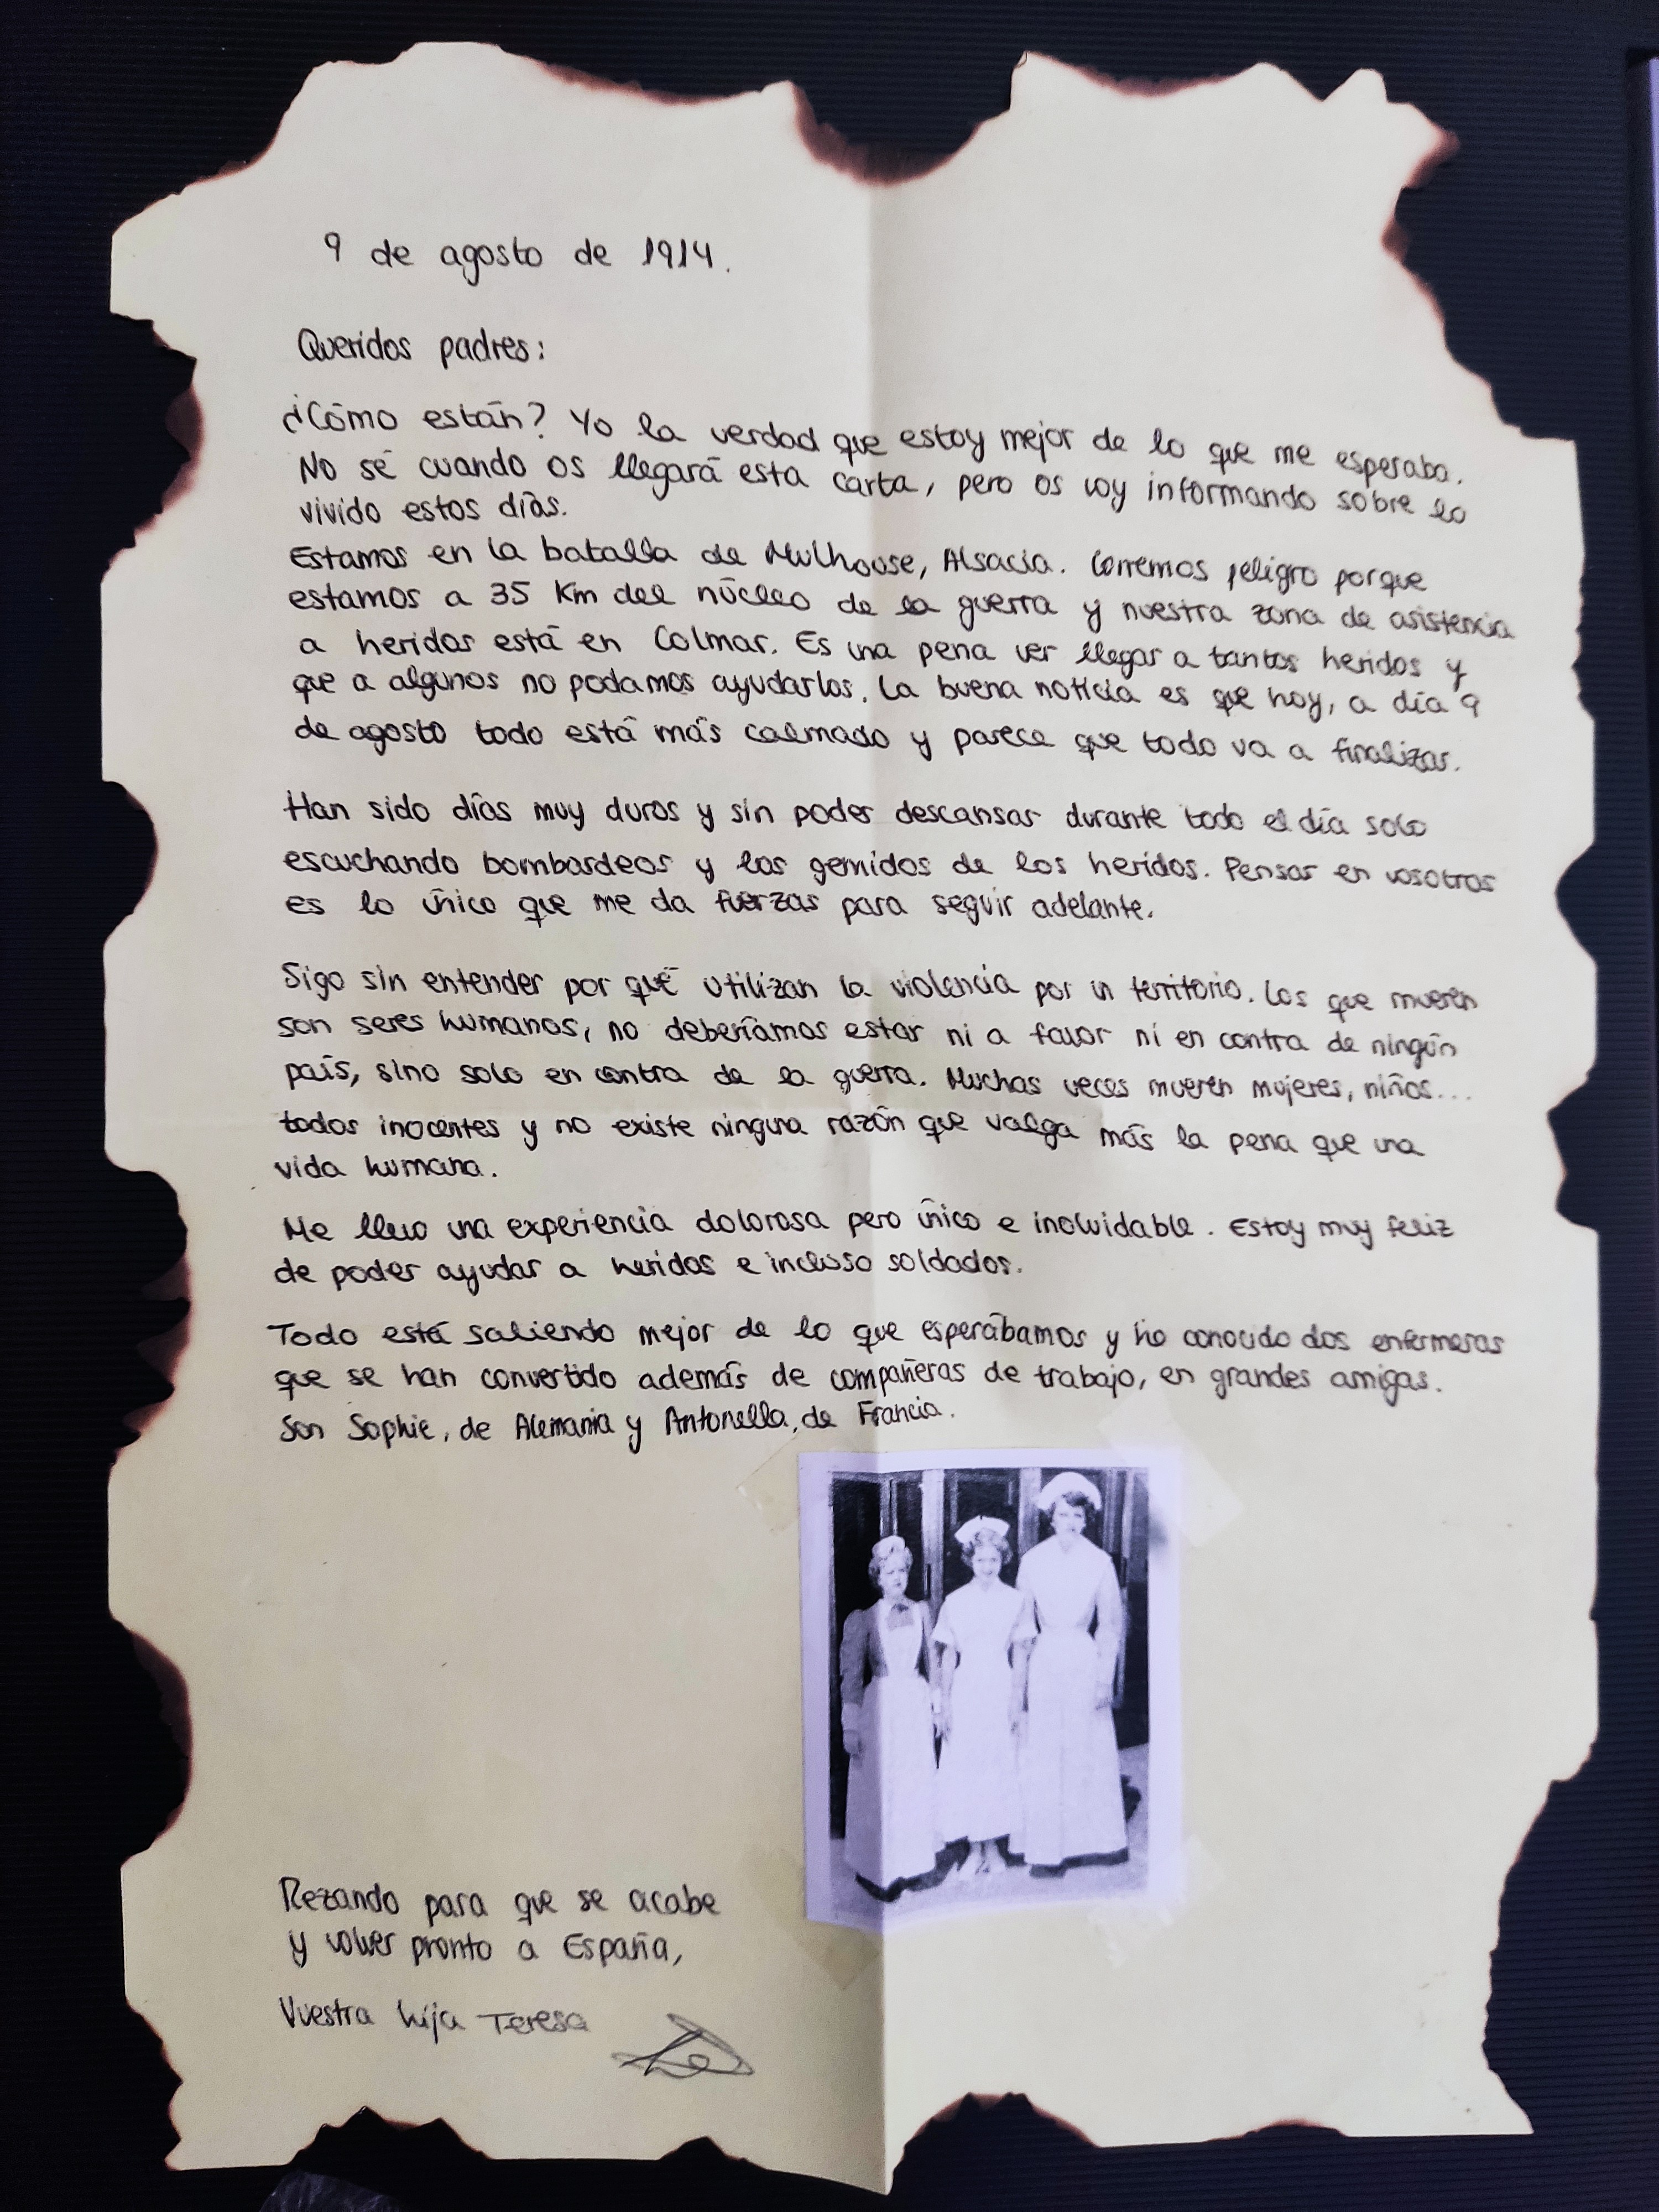 9 de agosto de 1914.
Queridos padres:
¿Cómo están? Yo la verdad que estoy mejor de lo que me esperaba.
No sé cuando os llegará esta carta, pero os voy informando sobre lo
vivido estos días.
Estamos en la batalla de Mulhouse, Alsacia. Corremos peligro porque
estamos a 35 Km del núcleo de la guerra y nuestra zona de asistencia
a heridos está en Colmar. Es una pena ver llegar a tantos heridos y
que a algunos no podamos ayudarlos. La buena noticia es que hoy, a día 9
de agosto todo está más calmado y parece que todo va a finalizar.
Han sido días muy duros y sin poder descansar durante todo el día solo
escuchando bombardeos y los gemidos de los heridos. Pensar en vosotros
es lo único que me da fuerzas para seguir adelante.
Sigo sin entender por qué utilizan la violencia por un territorio. Los que mueren
son seres humanos, no deberíamos estar ni a favor ni en contra de ningún
país, sino solo en contra de la guerra. Muchas veces mueren mujeres, niños...
todos inocentes y no existe ninguna razón que valga más la pena que una
vida humana.
Me llevo una experiencia dolorosa pero único e inolvidable. Estoy muy feliz
de poder ayudar a heridos e incluso soldados.
Todo está saliendo mejor de lo que esperábamos y he conocido dos enfermeras
que se han convertido además de compañeras de trabajo, en grandes amigas.
Son Sophie, de Alemania y Antonella, de Francia.
Rezando para que se acabe
y volver pronto a España,
Vuestra hija Teresa